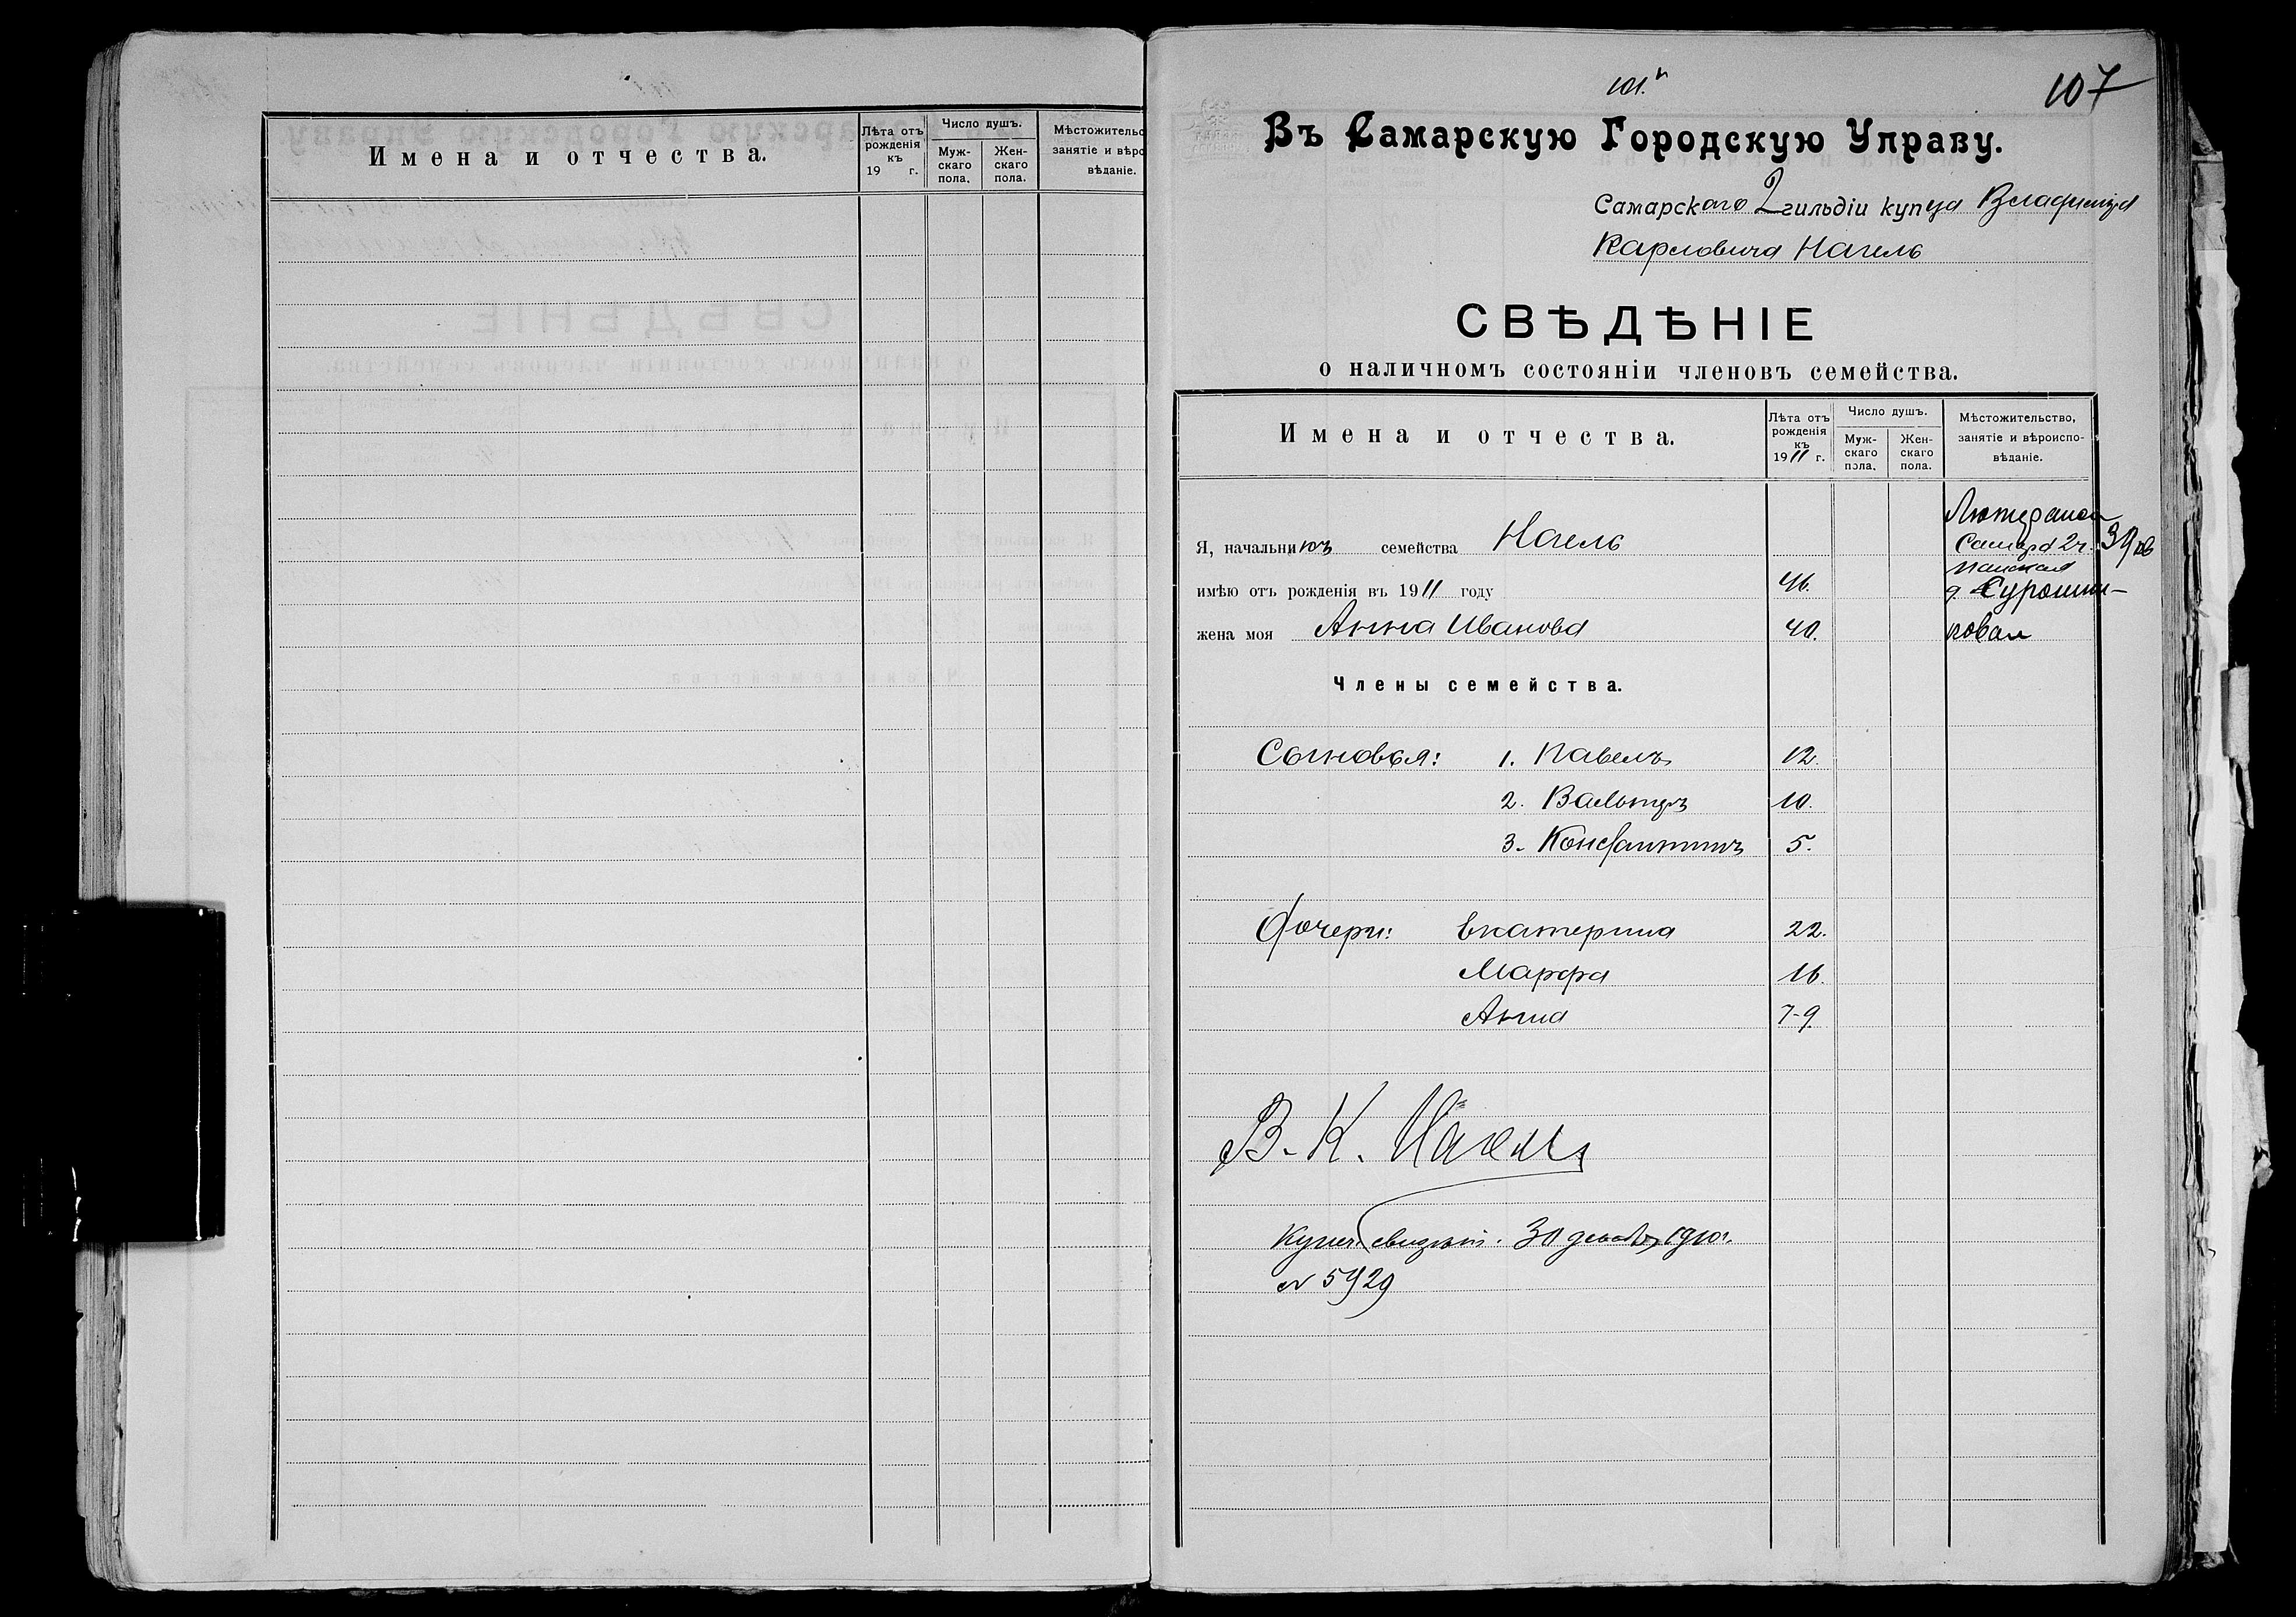 Имена и отчества.
Лѣта отъ рожденія къ 19 г.
Число душъ.
Муж-скаго пола.
Жен-скаго пола.
занятіе и
вѣданіе.
101.
107
Въ Самарскую Городскую Управу.
Самарскаго 2 гильдіи купца Владиміра
Карловича Нагель
СВѢДѢНІЕ
о наличномъ состояніи членовъ семейства.
Имена и отчества.
Лѣта отъ
рожденія
къ
1911 г.
Число душъ.
Муж-
скаго
пола.
Жен-
скаго
пола.
Мѣстожительство,
занятіе и вѣроиспо-
вѣданіе.
Я, начальникъ семейства Нагель
Самара 2ч.
имѣю отъ рожденія въ 1911 году 46.
д. Сурошни-
жена моя Анна Иванова 40.
кован
Члены семейства.
Сыновья: 1. Павелъ 12.
2. Вальтеръ 10.
3. Константинъ 5.
Дочери: Екатерина 22.
Марфа 16.
Анна 7-9.
В. К. Нагель
Купеч. свидѣт. 30 декабр 1910 г.
№ 5929